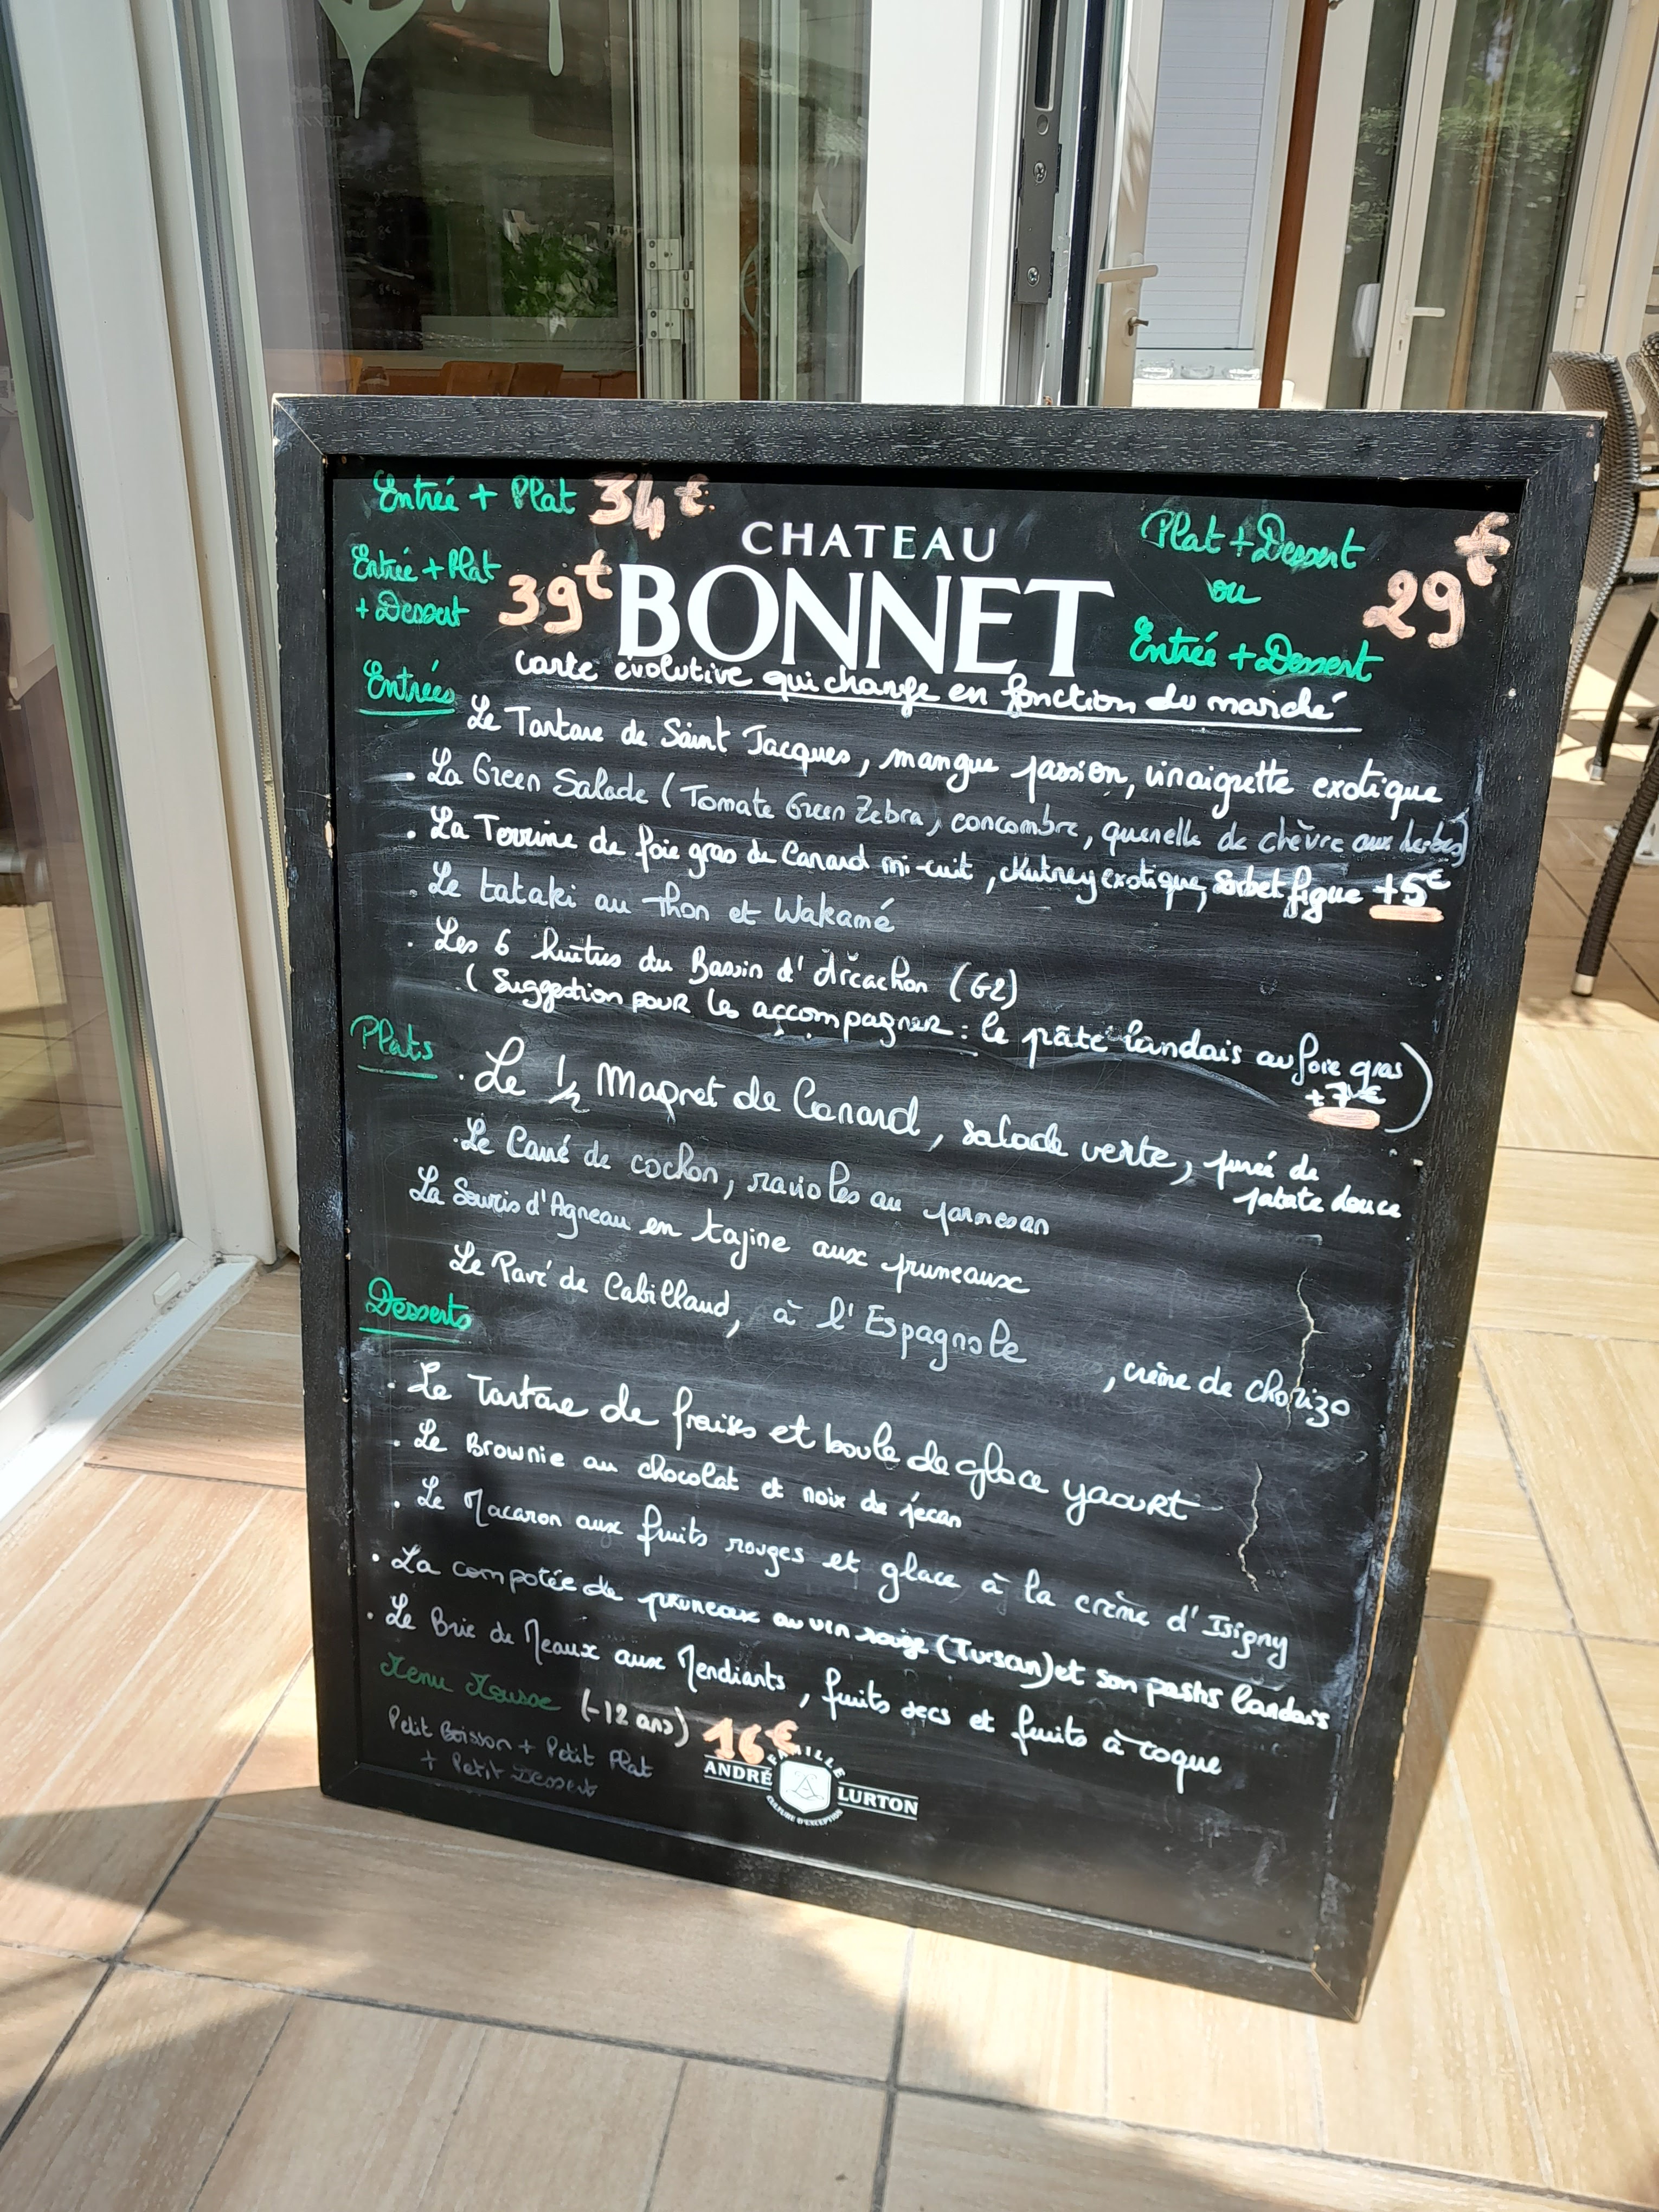 Entrée + Plat 34€
Entrée + Plat
+ Dessert 39€
CHATEAU
BONNET
Plat + Dessert
ou
Entrée + Dessert
29€
carte évolutive qui change en fonction du marché
Entrées
Le Tartare de Saint Jacques, mangue passion, vinaigrette exotique
- La Green Salade (Tomate Green Zebra, concombre, quenelle de chèvre aux herbes)
. La Terrine de foie gras de Canard mi-cuit, chutney exotique, sorbet figue +5€
. Le tataki au Thon et Wakamé
. Les 6 huîtres du Bassin d'Arcachon (G2)
(Suggestion pour les accompagner : le pâté landais au foie gras
+7€)
Plats
. Le 1/2 Magret de Canard, salade verte, purée de
patate douce
. Le Carré de cochon, ravioles au parmesan
La Souris d'Agneau en tajine aux pruneaux
Le Pavé de Cabillaud, à l'Espagnole , crème de chorizo
Desserts
. Le Tartare de fraises et boule de glace yaourt
. Le Brownie au chocolat et noix de pécan
. Le Macaron aux fruits rouges et glace à la crème d'Isigny
. La compotée de pruneaux au vin rouge (Tursan) et son pastis landais
. Le Brie de Meaux aux Mendiants, fruits secs et fruits à coque
Menu Mousse (-12 ans) 16€
Petit Boisson + Petit Plat
+ Petit Dessert
FAMILLE
ANDRÉ LURTON
CULTURE D'EXCEPTION